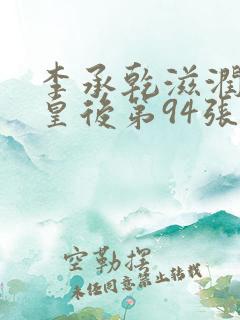 李承乾滋潤
皇後第94張
空勒摆
未经同意禁止转载